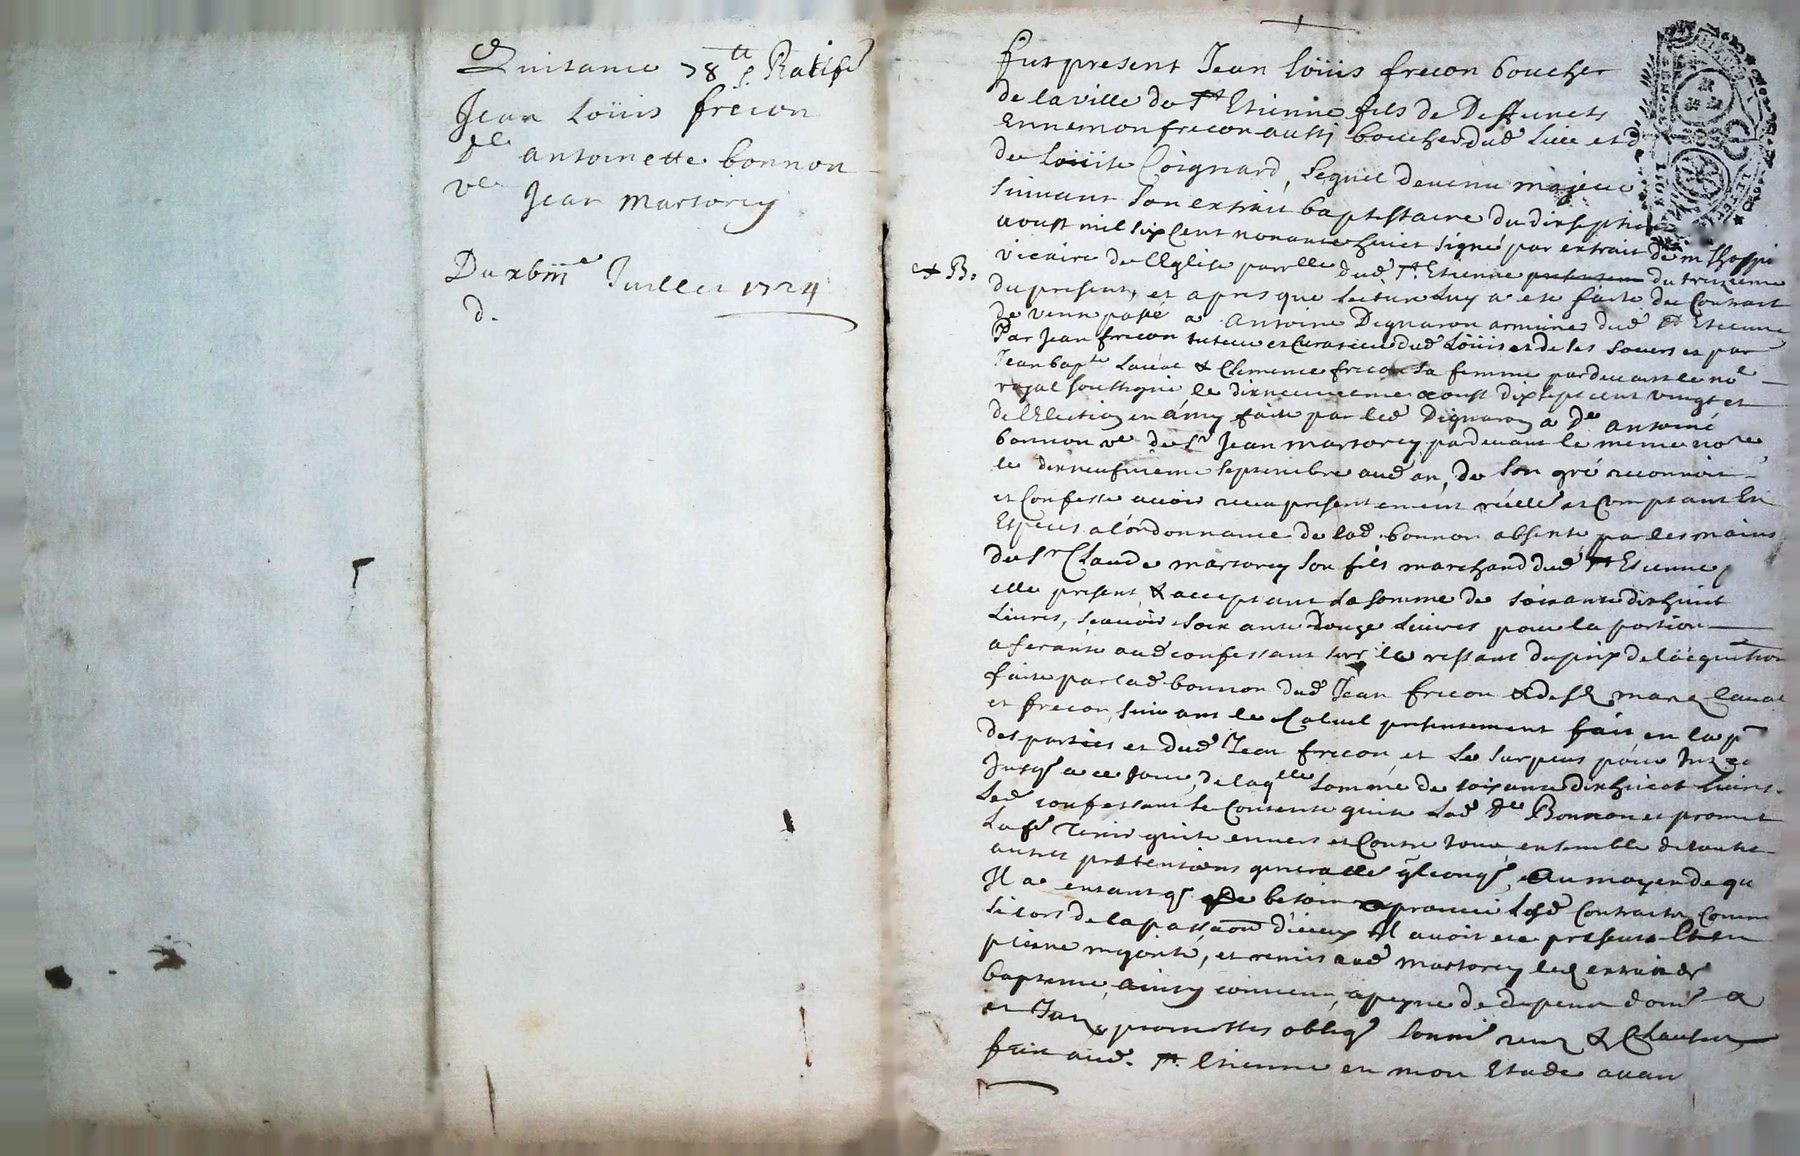 Quitance 78 ᵗᵗ & Ratif
Jean Loüis frecon
Dlle antoinette bonnon
ve Jean martorey
Du xbiiie Juillet 1724
d.
+ B.
fut present Jean loüis frecon boucher
de la ville de St Etienne fils de Deffuncts
Ennemon frecon aussi boucher dud lieu et d
de loüise Coignard, lequel devenu majeur
suivant son extrait baptistaire du dixsept
aoust mil six Cent nonante huict signé par extrait de mr
vicaire de lEglise parrlle dud St Etienne du treizieme
du present, et apres que lecture luy a ete faite du Contract
de vente passé a Antoine Dignaron armurier dud St Etienne
Par Jean frecon tuteur et Curateur dud Loüis et de ses soeurs et par
Jean bapte Laval & Clemence frecon sa femme pardevant le nore
royal soussigné le dixneuvieme aoust dixsept cent vingt et
de lElection en amy faite par led Dignaron a De antoine
bonnon ve de Sr Jean martorey pardevant le meme nore
le dixneufvieme septembre aud an, de son gré reconnoit
et Confesse avoir receu presentement réelle et Comptant En
Especes a lordonnance de lad bonnon absente par les mains
de Sr Claude martorey son fils marchand dud St Etienne
elle present & acceptant la somme de soixante dixhuict
Livres, scavoir soixante douze Livres pour la portion
aferante aud confessant sur le restant du prix de lacquisition
faite par lad bonnon dud Jean frecon & des mariez Laval
et frecon, suivant le Calcul presentement fait en la p
des parties et dud Jean frecon, et le surplus pour Int
Jusqs a ce jour, de laqlle somme de soixante dixhuict livres
Led confessant se Contente quitte lad De Bonnon et promet
la f tenir quite envers et Contre tous ensemble de toute
autres pretentions generalles qlconqs, Au moyen de qu
Il a entant qs de besoin aprouvé lesd Contracts Comme
si lors de la passaon diceux Il avoit ete present En
pleine majorité, et remis aud martorey led extrait de
baptesme, ainsy convenu a peyne de depens doms
et Int, promettes obligs soumis renz & Clauses
fait aud. St Etienne en mon Etude avan